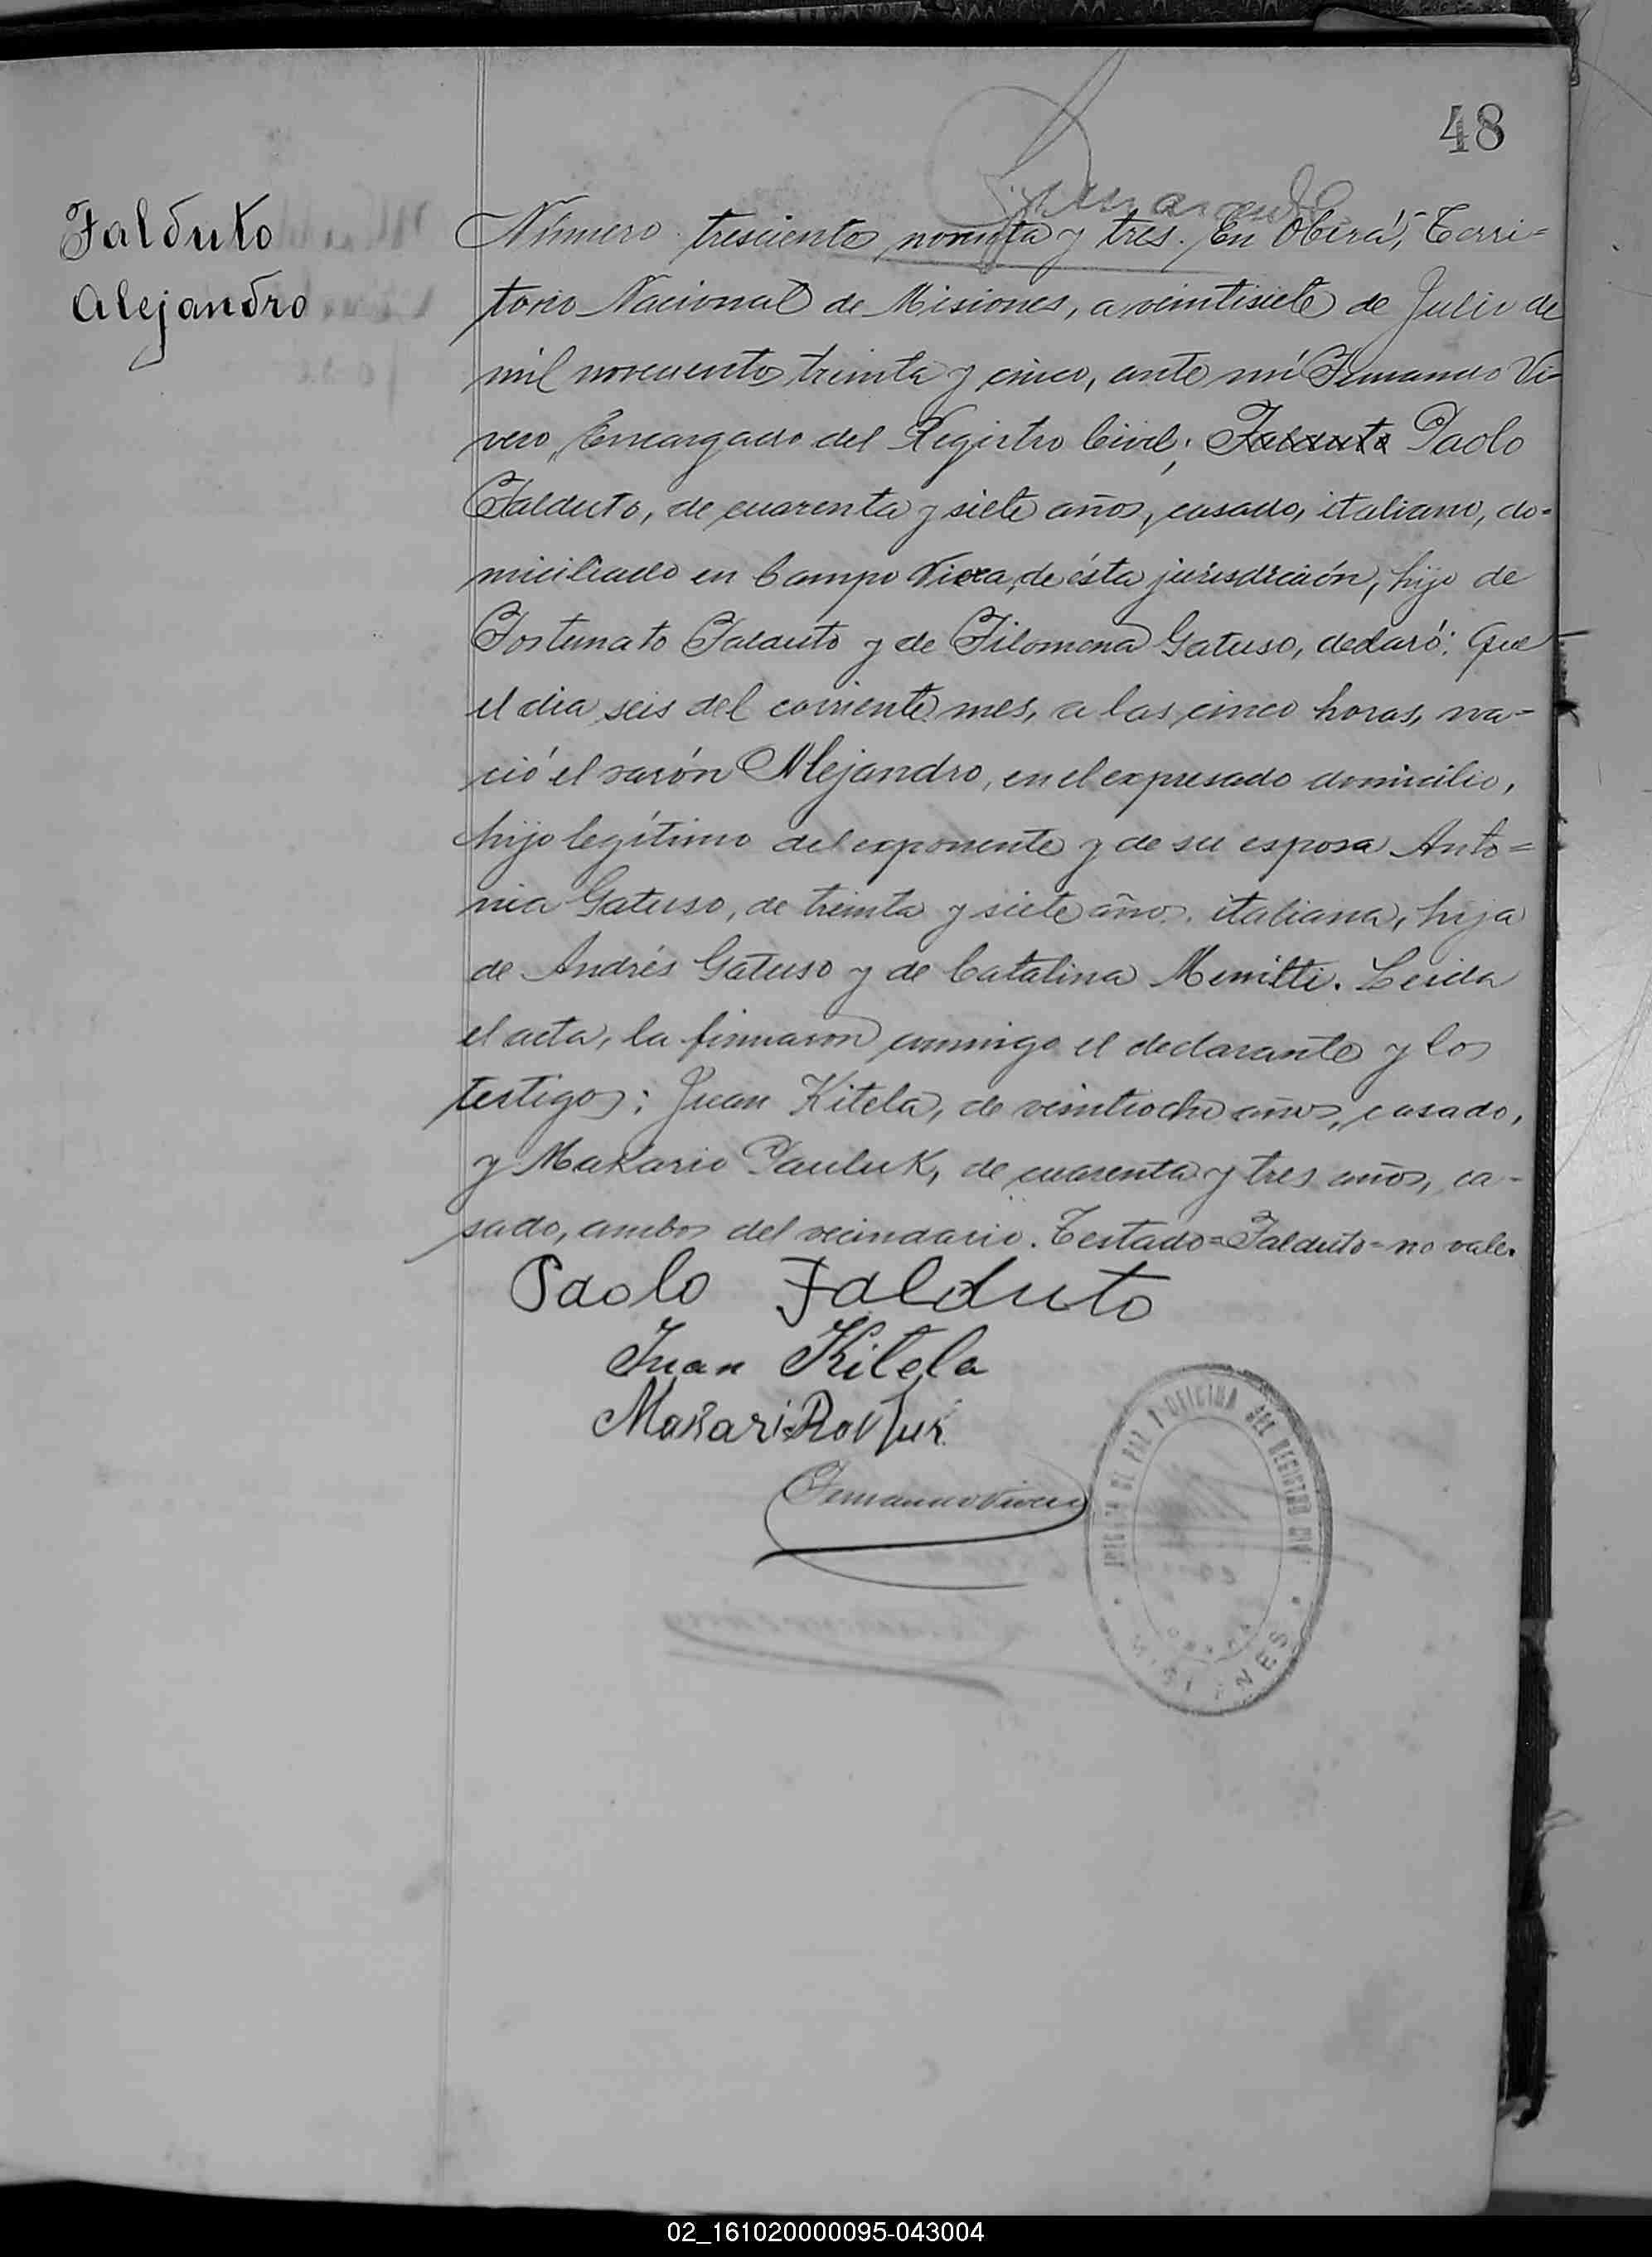 48
Falduto
Alejandro
Número tresciento noventa y tres. En Oberá, Terri=
torio Nacional de Misiones, a veintisiete de Julio de
mil novecientos treinta y cinco, ante mí Fernando Vi-
vero, Encargado del Registro Civil; Falduto Paolo
Falduto, de cuarenta y siete años, casado, italiano, do-
miciliado en Campo Viera, de ésta jurisdicción, hijo de
Fortunato Falduto y de Filomena Gatuso, declaró: Que
el dia seis del corriente mes, a las cinco horas, na-
ció el varón Alejandro, en el expresado domicilio,
hijo legítimo del exponente y de su esposa Anto=
nia Gatuso, de treinta y siete años, italiana, hija
de Andrés Gatuso y de Catalina Menitti. Leida
el acta, la firmaron conmigo el declarante y los
testigos: Juan Kitela, de veintiocho años, casado,
y Makario Pauluk, de cuarenta y tres años, ca-
sado, ambos del vecindario. Testado=Falduto=no vale.
Paolo Falduto
Juan Kitela
Makari
Fernando Vivero
DE PAZ Y OFICINA DEL REGISTRO CIVIL
MISIONES
02_161020000095-043004